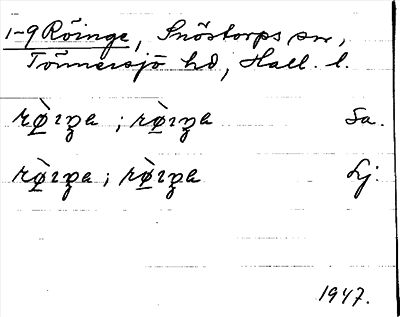 1-9 Röinge, Snöstorps sn,
Tönnersjö hd, Hall. l.
rø̀ıŋa ; rø̀ıŋa Sa.
rø̀ıŋa ; rø̀ıŋa Lj.
1947.